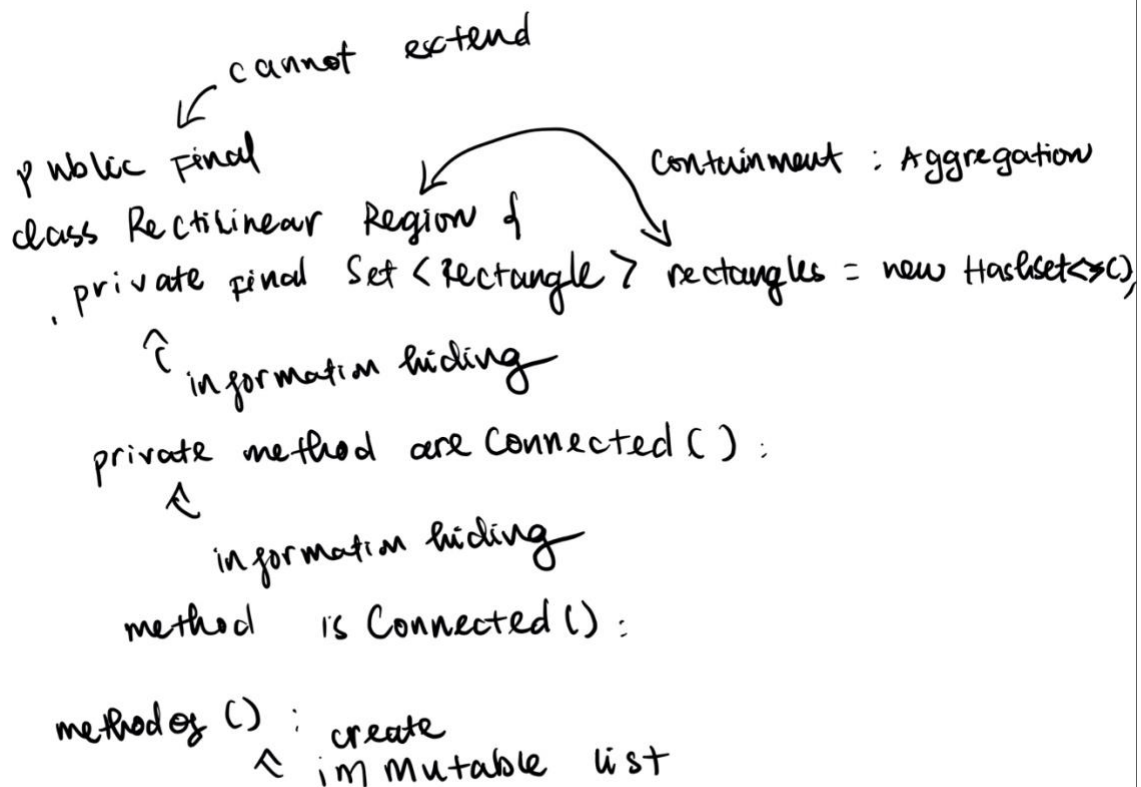 cannot extend
public Final
Containment : Aggregation
class Rectilinear Region {
private Final Set <Rectangle> rectangles = new Hashset<>();
information hiding
private method are Connected ( ) :
information hiding
method is Connected () :
method of () : create
immutable list